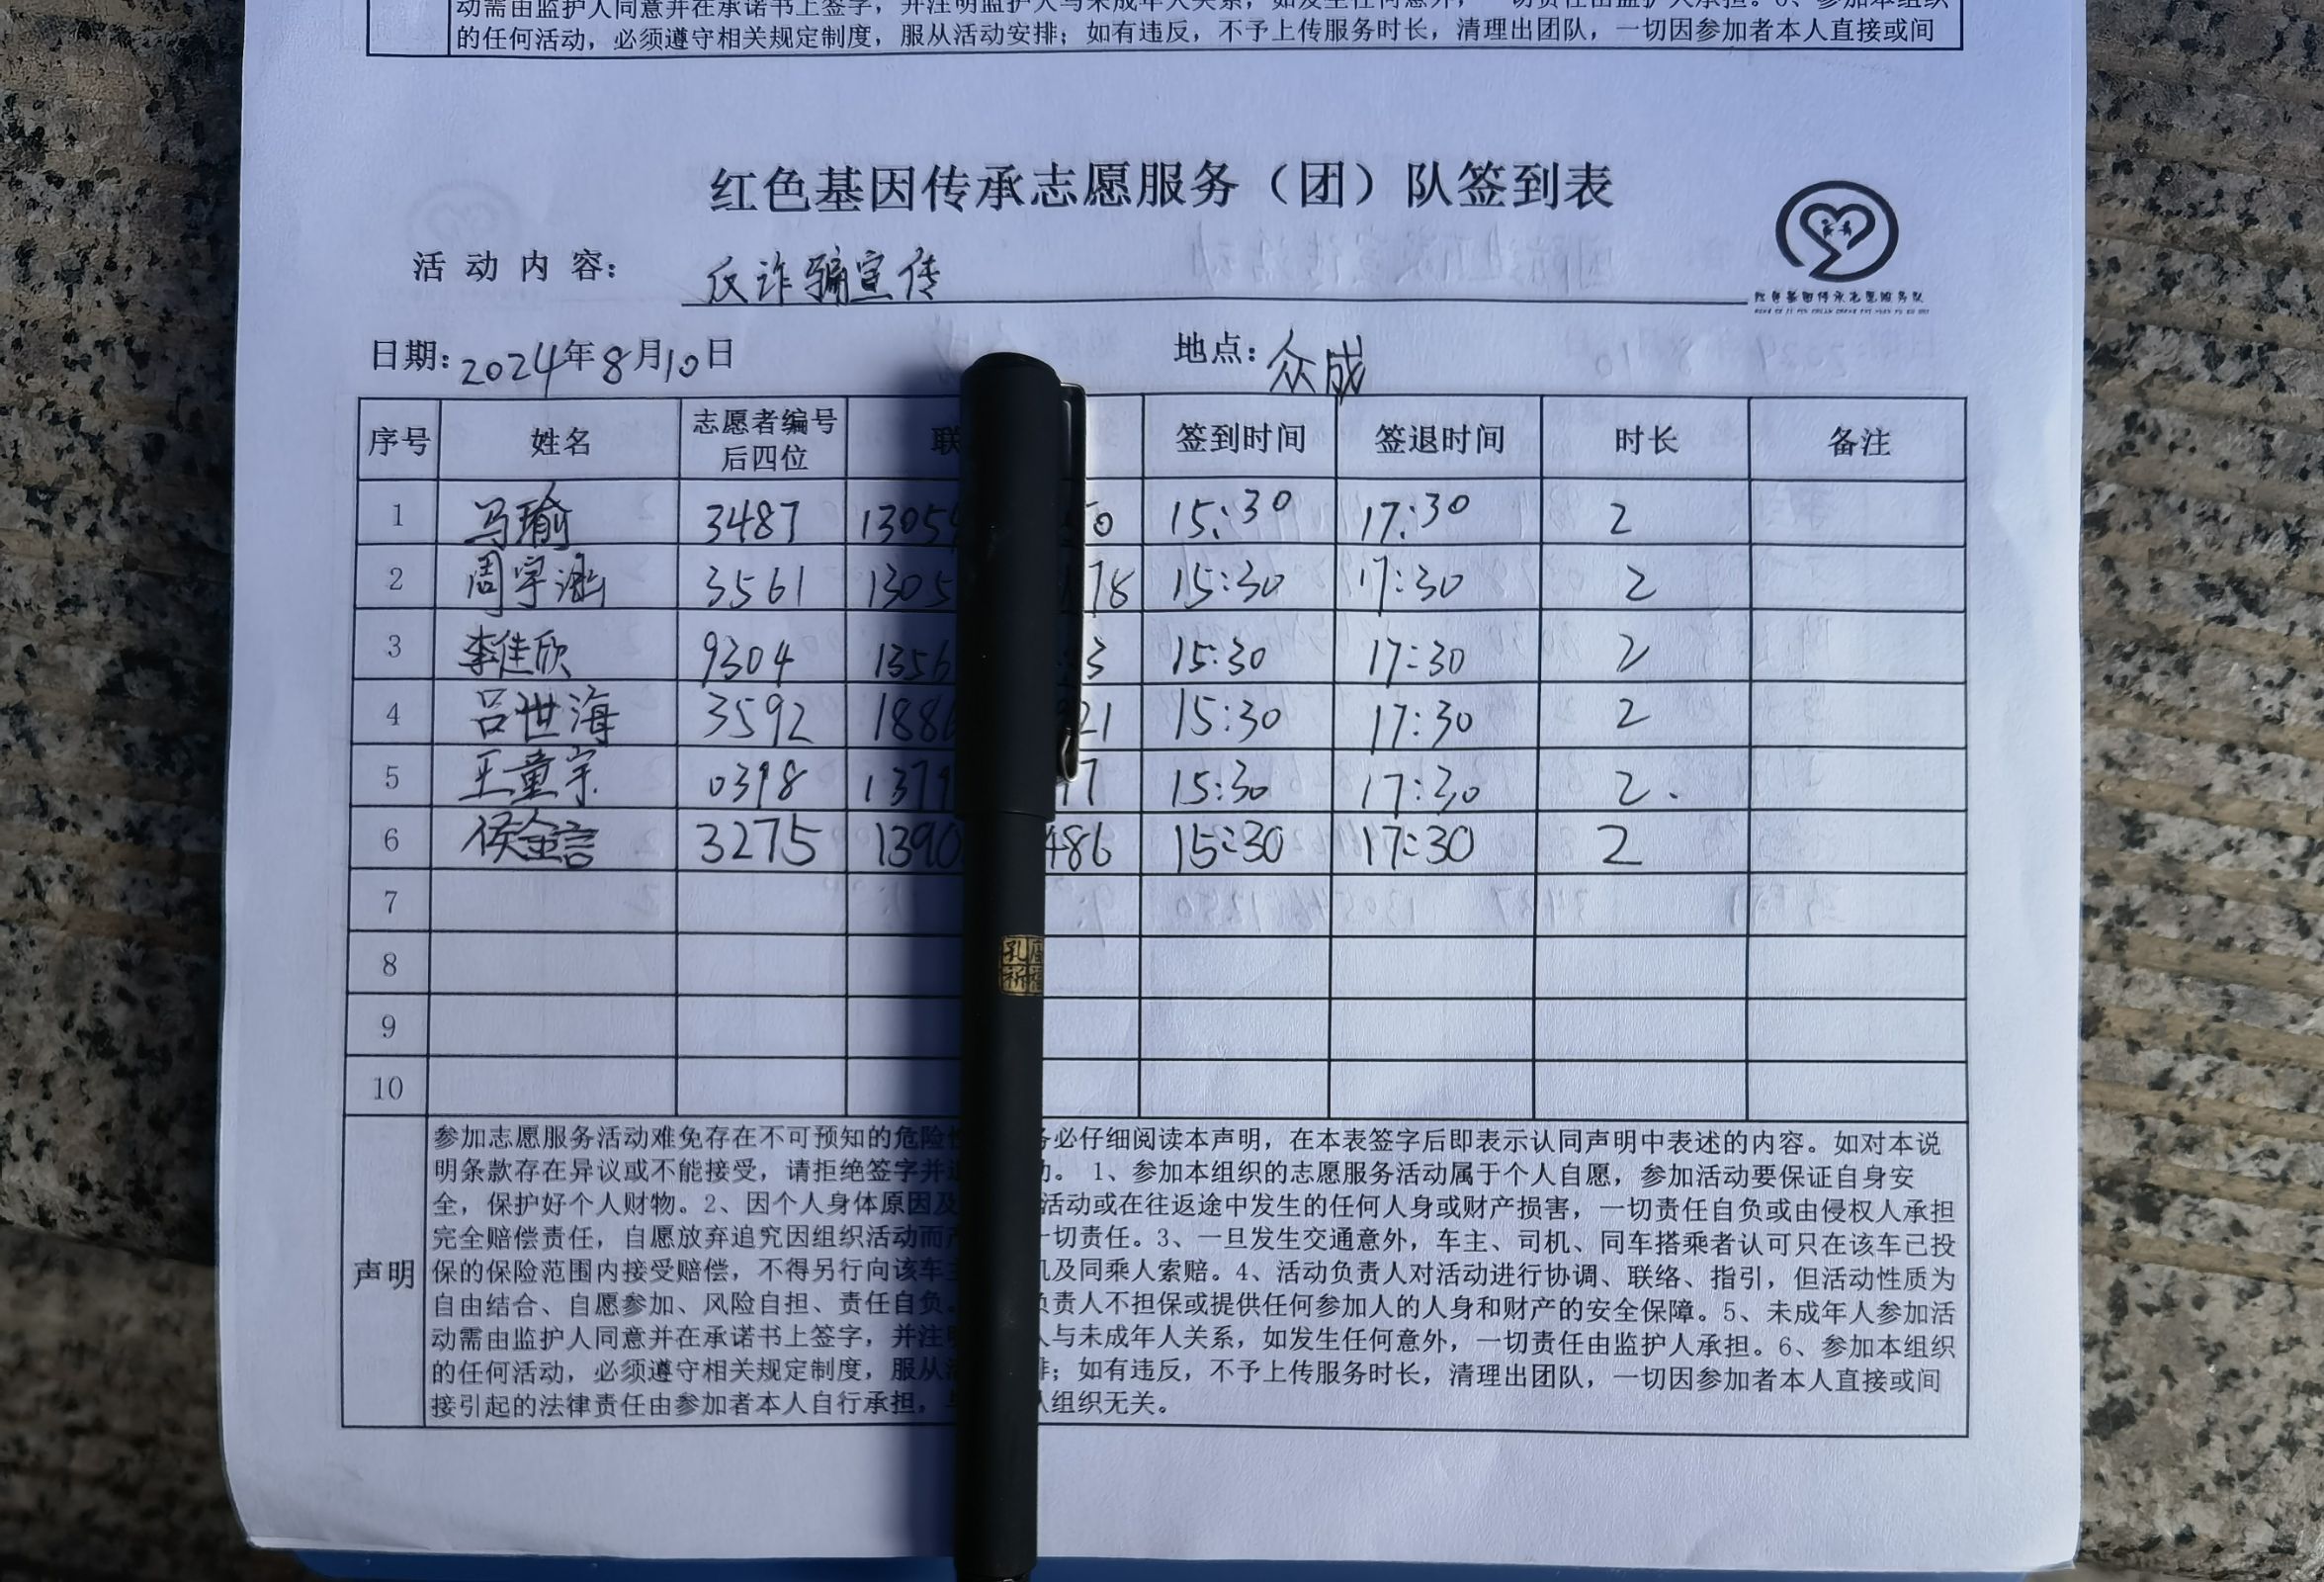 动需由监护人同意并在承诺书上签字，并注明监护人与未成年人关系，如发生任何意外，一切责任由监护人承担。6、参加本组织
的任何活动，必须遵守相关规定制度，服从活动安排；如有违反，不予上传服务时长，清理出团队，一切因参加者本人直接或间
红色基因传承志愿服务（团）队签到表
活动内容： 反诈骗宣传
红色基因传承志愿服务队
日期：2024年8月10日 地点：众成
序号 姓名 志愿者编号后四位 联 签到时间 签退时间 时长 备注
1 马瑜 3487 1305 50 15:30 17:30 2
2 周宇涵 3561 1305 178 15:30 17:30 2
3 李佳欣 9304 1356 3 15:30 17:30 2
4 吕世海 3592 188 21 15:30 17:30 2
5 王童宗 0398 1379 97 15:30 17:30 2.
6 侯金言 3275 1390 486 15:30 17:30 2
7
8
9
10
孔庙
祈福
声明
参加志愿服务活动难免存在不可预知的危险 务必仔细阅读本声明，在本表签字后即表示认同声明中表述的内容。如对本说
明条款存在异议或不能接受，请拒绝签字并 动。 1、参加本组织的志愿服务活动属于个人自愿，参加活动要保证自身安
全，保护好个人财物。2、因个人身体原因及 活动或在往返途中发生的任何人身或财产损害，一切责任自负或由侵权人承担
完全赔偿责任，自愿放弃追究因组织活动而产 一切责任。3、一旦发生交通意外，车主、司机、同车搭乘者认可只在该车已投
保的保险范围内接受赔偿，不得另行向该车主 机及同乘人索赔。4、活动负责人对活动进行协调、联络、指引，但活动性质为
自由结合、自愿参加、风险自担、责任自负。 负责人不担保或提供任何参加人的人身和财产的安全保障。5、未成年人参加活
动需由监护人同意并在承诺书上签字，并注明 人与未成年人关系，如发生任何意外，一切责任由监护人承担。6、参加本组织
的任何活动，必须遵守相关规定制度，服从活 排；如有违反，不予上传服务时长，清理出团队，一切因参加者本人直接或间
接引起的法律责任由参加者本人自行承担，与 人组织无关。